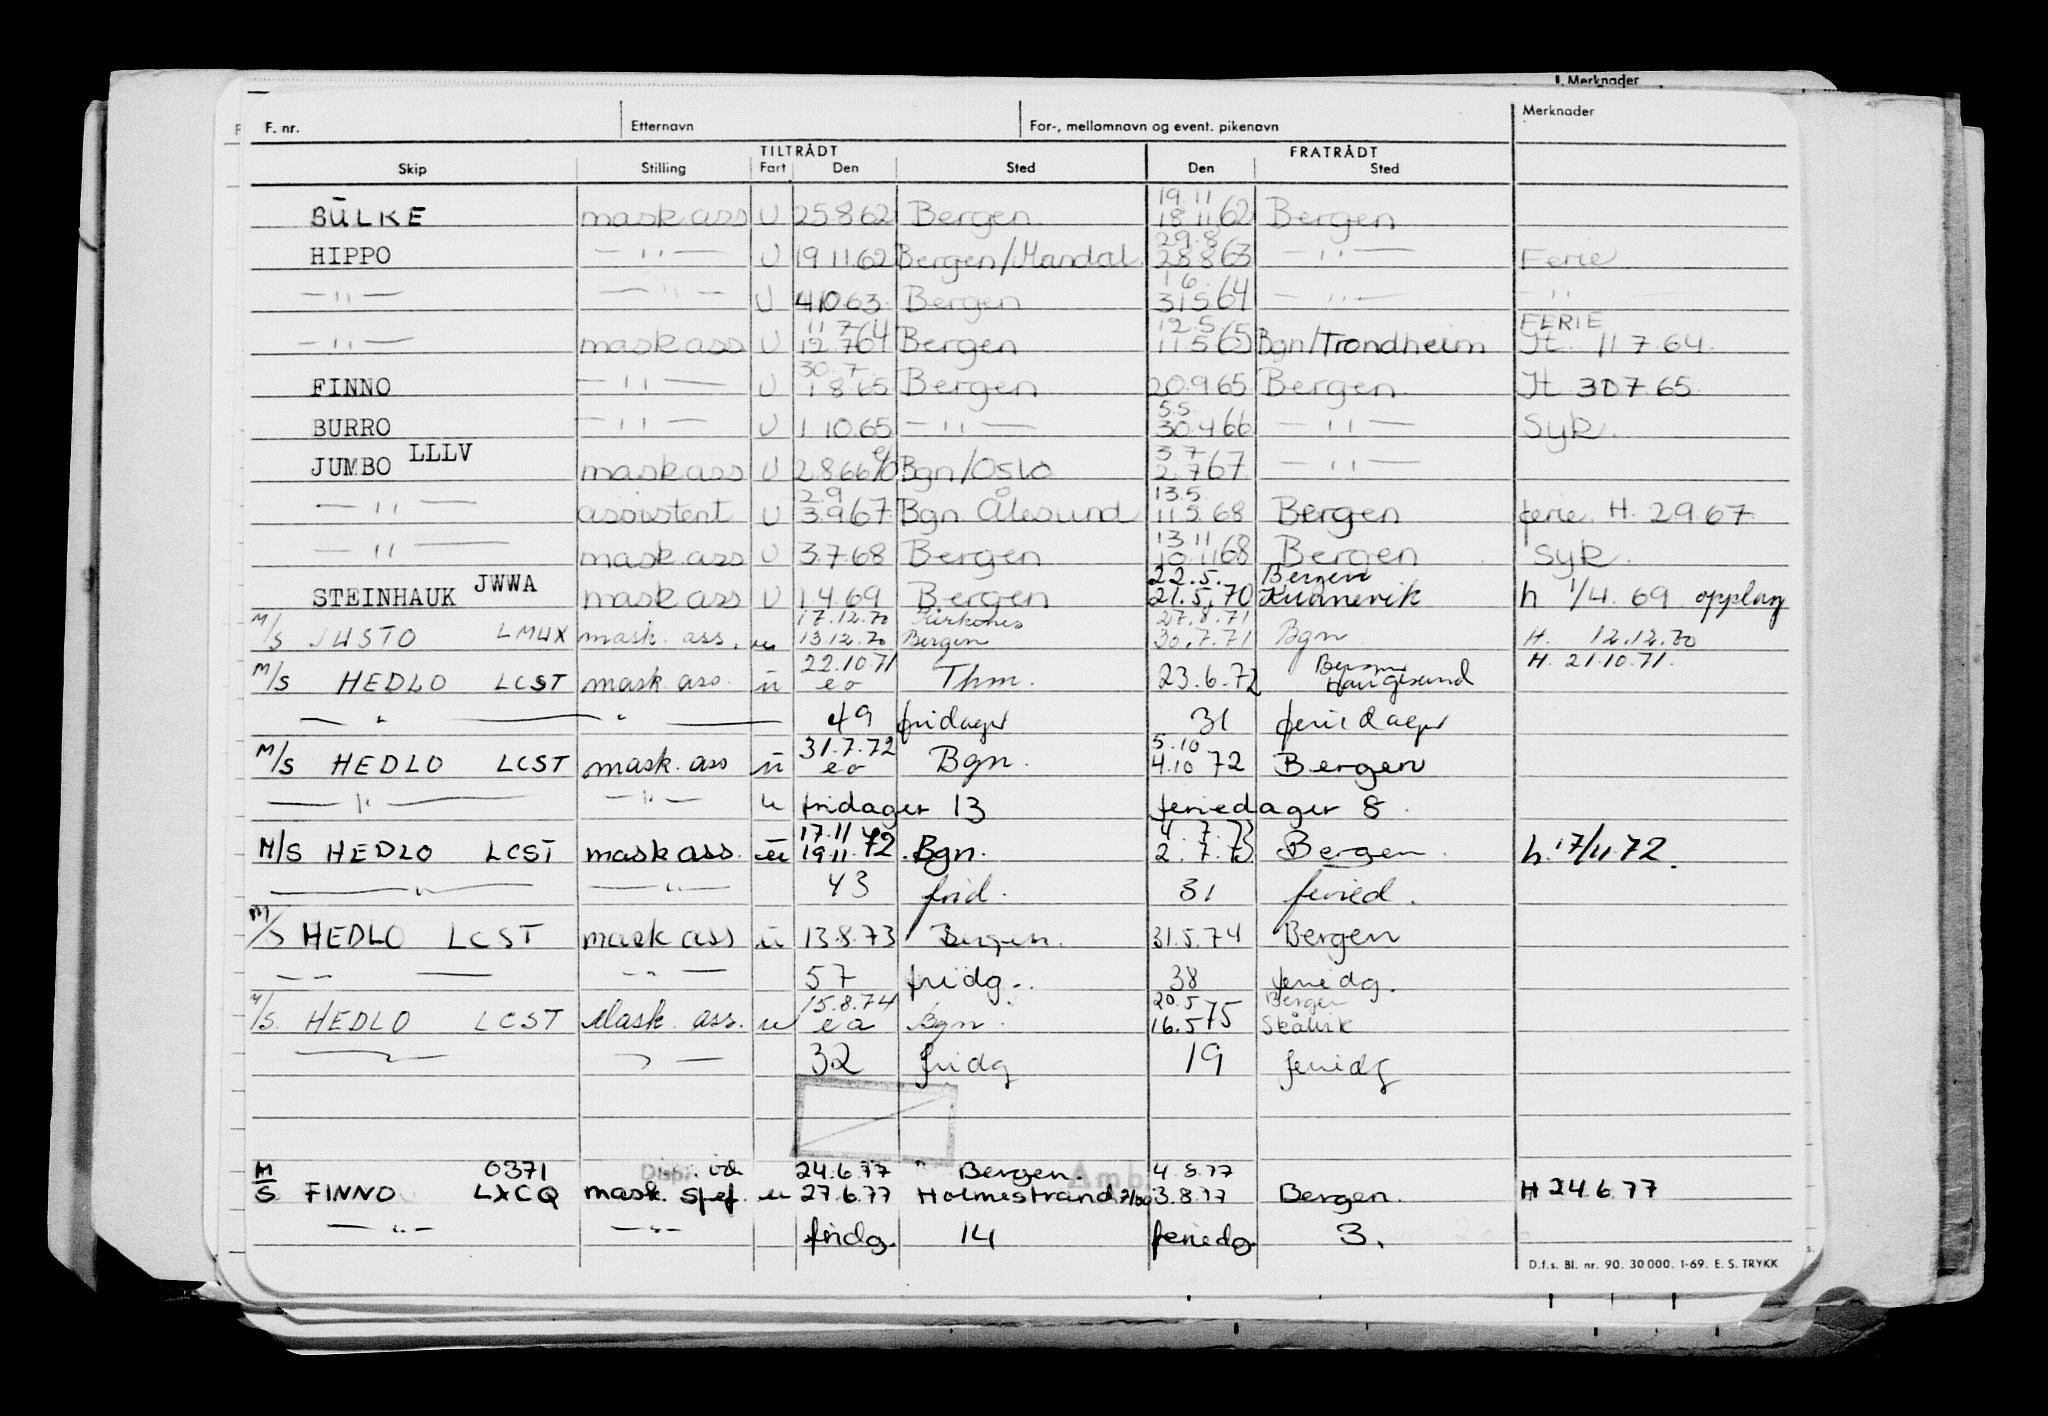 Merknader
F. nr. Etternavn For-, mellomnavn og event. pikenavn Merknader
TILTRÅDT FRATRÅDT
Skip Stilling Fart Den Sted Den Sted
19.11
BULKE mask ass U 25.8 62 Bergen 18.11 62 Bergen
29.8
HIPPO — " — U 19 11.62 Bergen/Mandal 28.8 63 — " — Ferie
1 6.
— " — — " — U 4 10 63. Bergen 31.5 64 — " — — " —
11 7 12.5 FERIE
— " — mask ass U 12.7 64 Bergen 11.5 65 Bgn/Trondheim Jt. 11 7 64.
30.7.
FINNO — " — U 1 8.65 Bergen 20.9 65 Bergen Jt 30 7 65
5.5.
BURRO — " — U 1 10.65 — " — 30.4 66 — " — Syk.
LLLV 3.7
JUMBO mask ass U 2.8 66 Bgn/Oslo 2.7 67 — " —
2.9 13.5.
— " — assistent U 3.9 67 Bgn Ålesund 11.5.68 Bergen ferie H. 2 9 67
13 11
— " — mask ass U 3.7.68 Bergen 10.11 68 Bergen Syk.
JWWA 22.5. Bergen
STEINHAUK mask ass U 1.4.69 Bergen 21.5.70 Kvanevik h 1/4. 69 opplag
17.12.70 Kirkenes 27.8.71
M/S JUSTO LMUX mask. ass. u 13.12.70 Bergen 30.7.71 Bgn H. 12.12.70
22.10.71 H. 21.10.71.
M/S HEDLO LCST mask ass. u eo Thm. 23.6.72 Haugesund
— " — — " — 49 fridager 31 feriedager
31.7.72 5.10
M/S HEDLO LCST mask. ass u eo Bgn. 4.10 72 Bergen
— " — — " — u fridager 13 feriedager 8.
17.11 4.7.73
M/S HEDLO LCST mask ass. u 19.11.72. Bgn. 2.7.73 Bergen. h. 17/11.72.
— " — — " — 43 frid. 31 feried.
M/S HEDLO LCST mask ass u 13.8.73 Bergen. 31.5.74 Bergen
— — — " — 57 fridg. 38 feriedg.
15.8.74 20.5 Bergen
M/S. HEDLO LCST Mask. ass. u ea Bgn. 16.5 75 Skålvik
— " — — " — 32 fridg 19 feriedg
M 0371 Disp. 24.6.77 " Bergen. Amb 4.8.77
S FINNO LXCQ mask. u 27.6.77 Holmestrand 3.8.77 Bergen. H 24.6.77
— " — — " — fridg. 14 feriedg. 3.
D.f.s. Bl. nr. 90. 30 000. 1-69. E. S. TRYKK